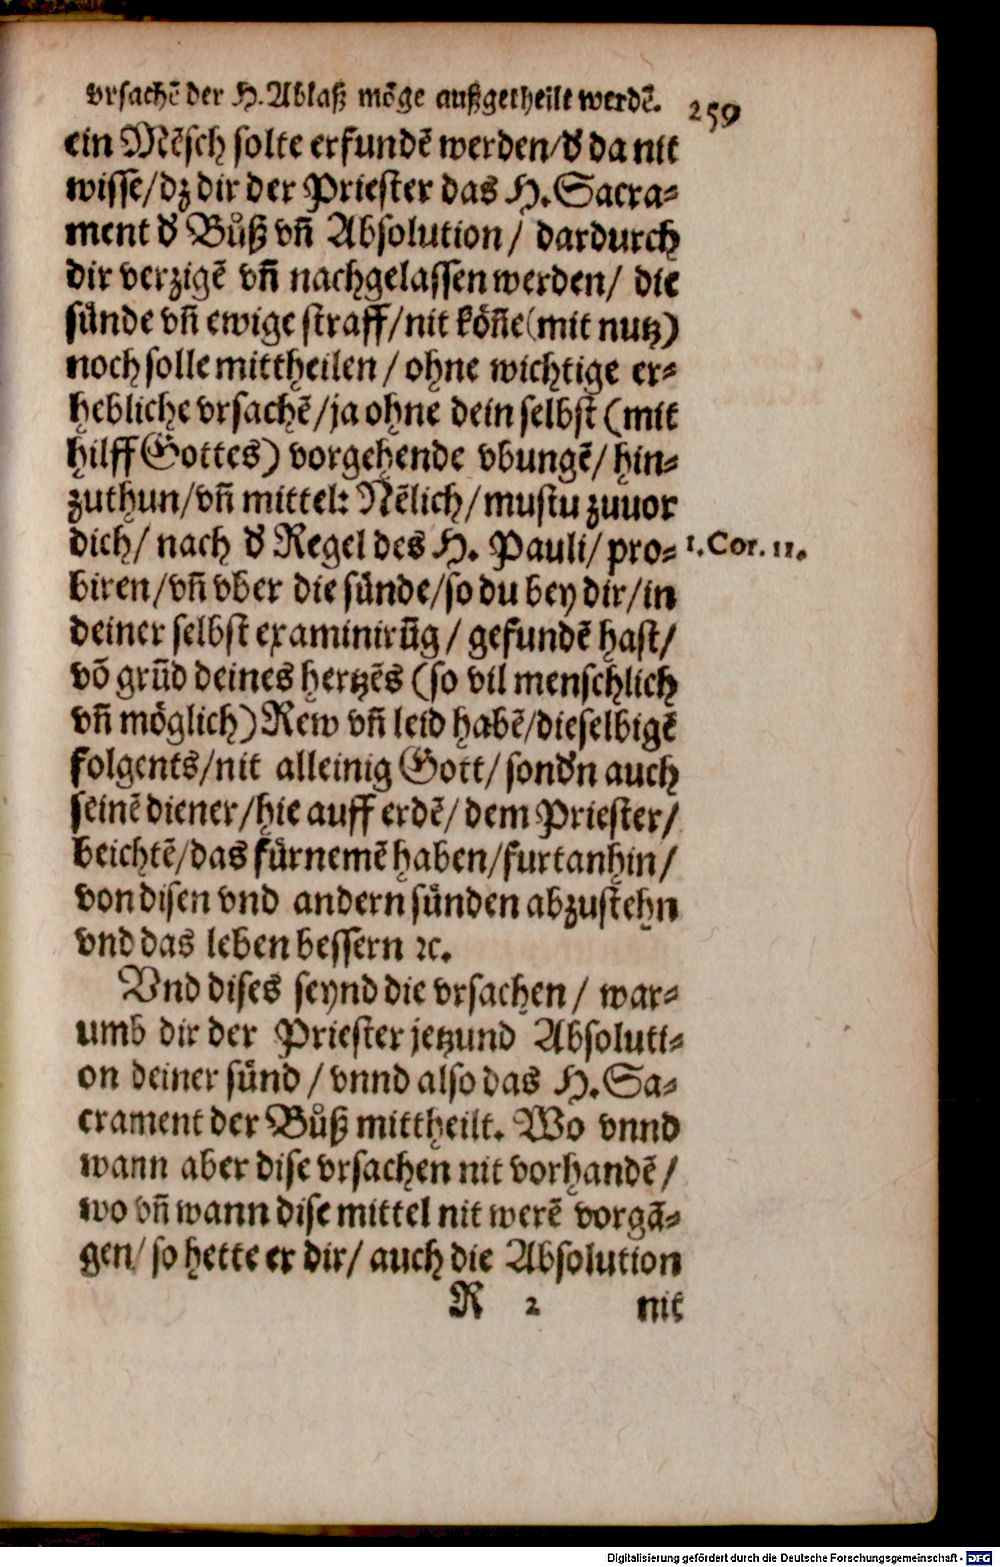 vrsachē der H. Ablaß mőge außgetheilt werdē. 259
ein Mēsch solte erfundē werden/d' da nit
wisse/dz dir der Priester das H. Sacra-
ment d' Bůß vñ Absolution/ dardurch
dir verzigē vñ nachgelassen werden/ die
sünde vñ ewige straff/nit köñe (mit nutz)
noch solle mittheilen/ ohne wichtige er-
hebliche vrsachē/ja ohne dein selbst (mit
hilff Gottes) vorgehende vbungē/ hin-
zuthun/vñ mittel: Nēlich/ mustu zuuor
dich/ nach d' Regel des H. Pauli/ pro-
1. Cor. 11.
biren/vñ vber die sünde/so du bey dir/in
deiner selbst examinirūg/ gefundē hast/
vō grūd deines hertzēs (so vil menschlich
vñ möglich) Rew vñ leid habē/dieselbigē
folgents/nit alleinig Gott/ sond'n auch
seinē diener/hie auff erdē/ dem Priester/
beichtē/das fürnemē haben/furtanhin/
von disen vnd andern sünden abzustehn
vnd das leben bessern ꝛc.
Vnd dises seynd die vrsachen/ war-
umb dir der Priester jetzund Absoluti-
on deiner sünd/ vnnd also das H. Sa-
crament der Bůß mittheilt. Wo vnnd
wann aber dise vrsachen nit vorhandē/
wo vñ wann dise mittel nit werē vorgā-
gen/ so hette er dir/ auch die Absolution
R 2 nit
Digitalisierung gefördert durch die Deutsche Forschungsgemeinschaft - DFG